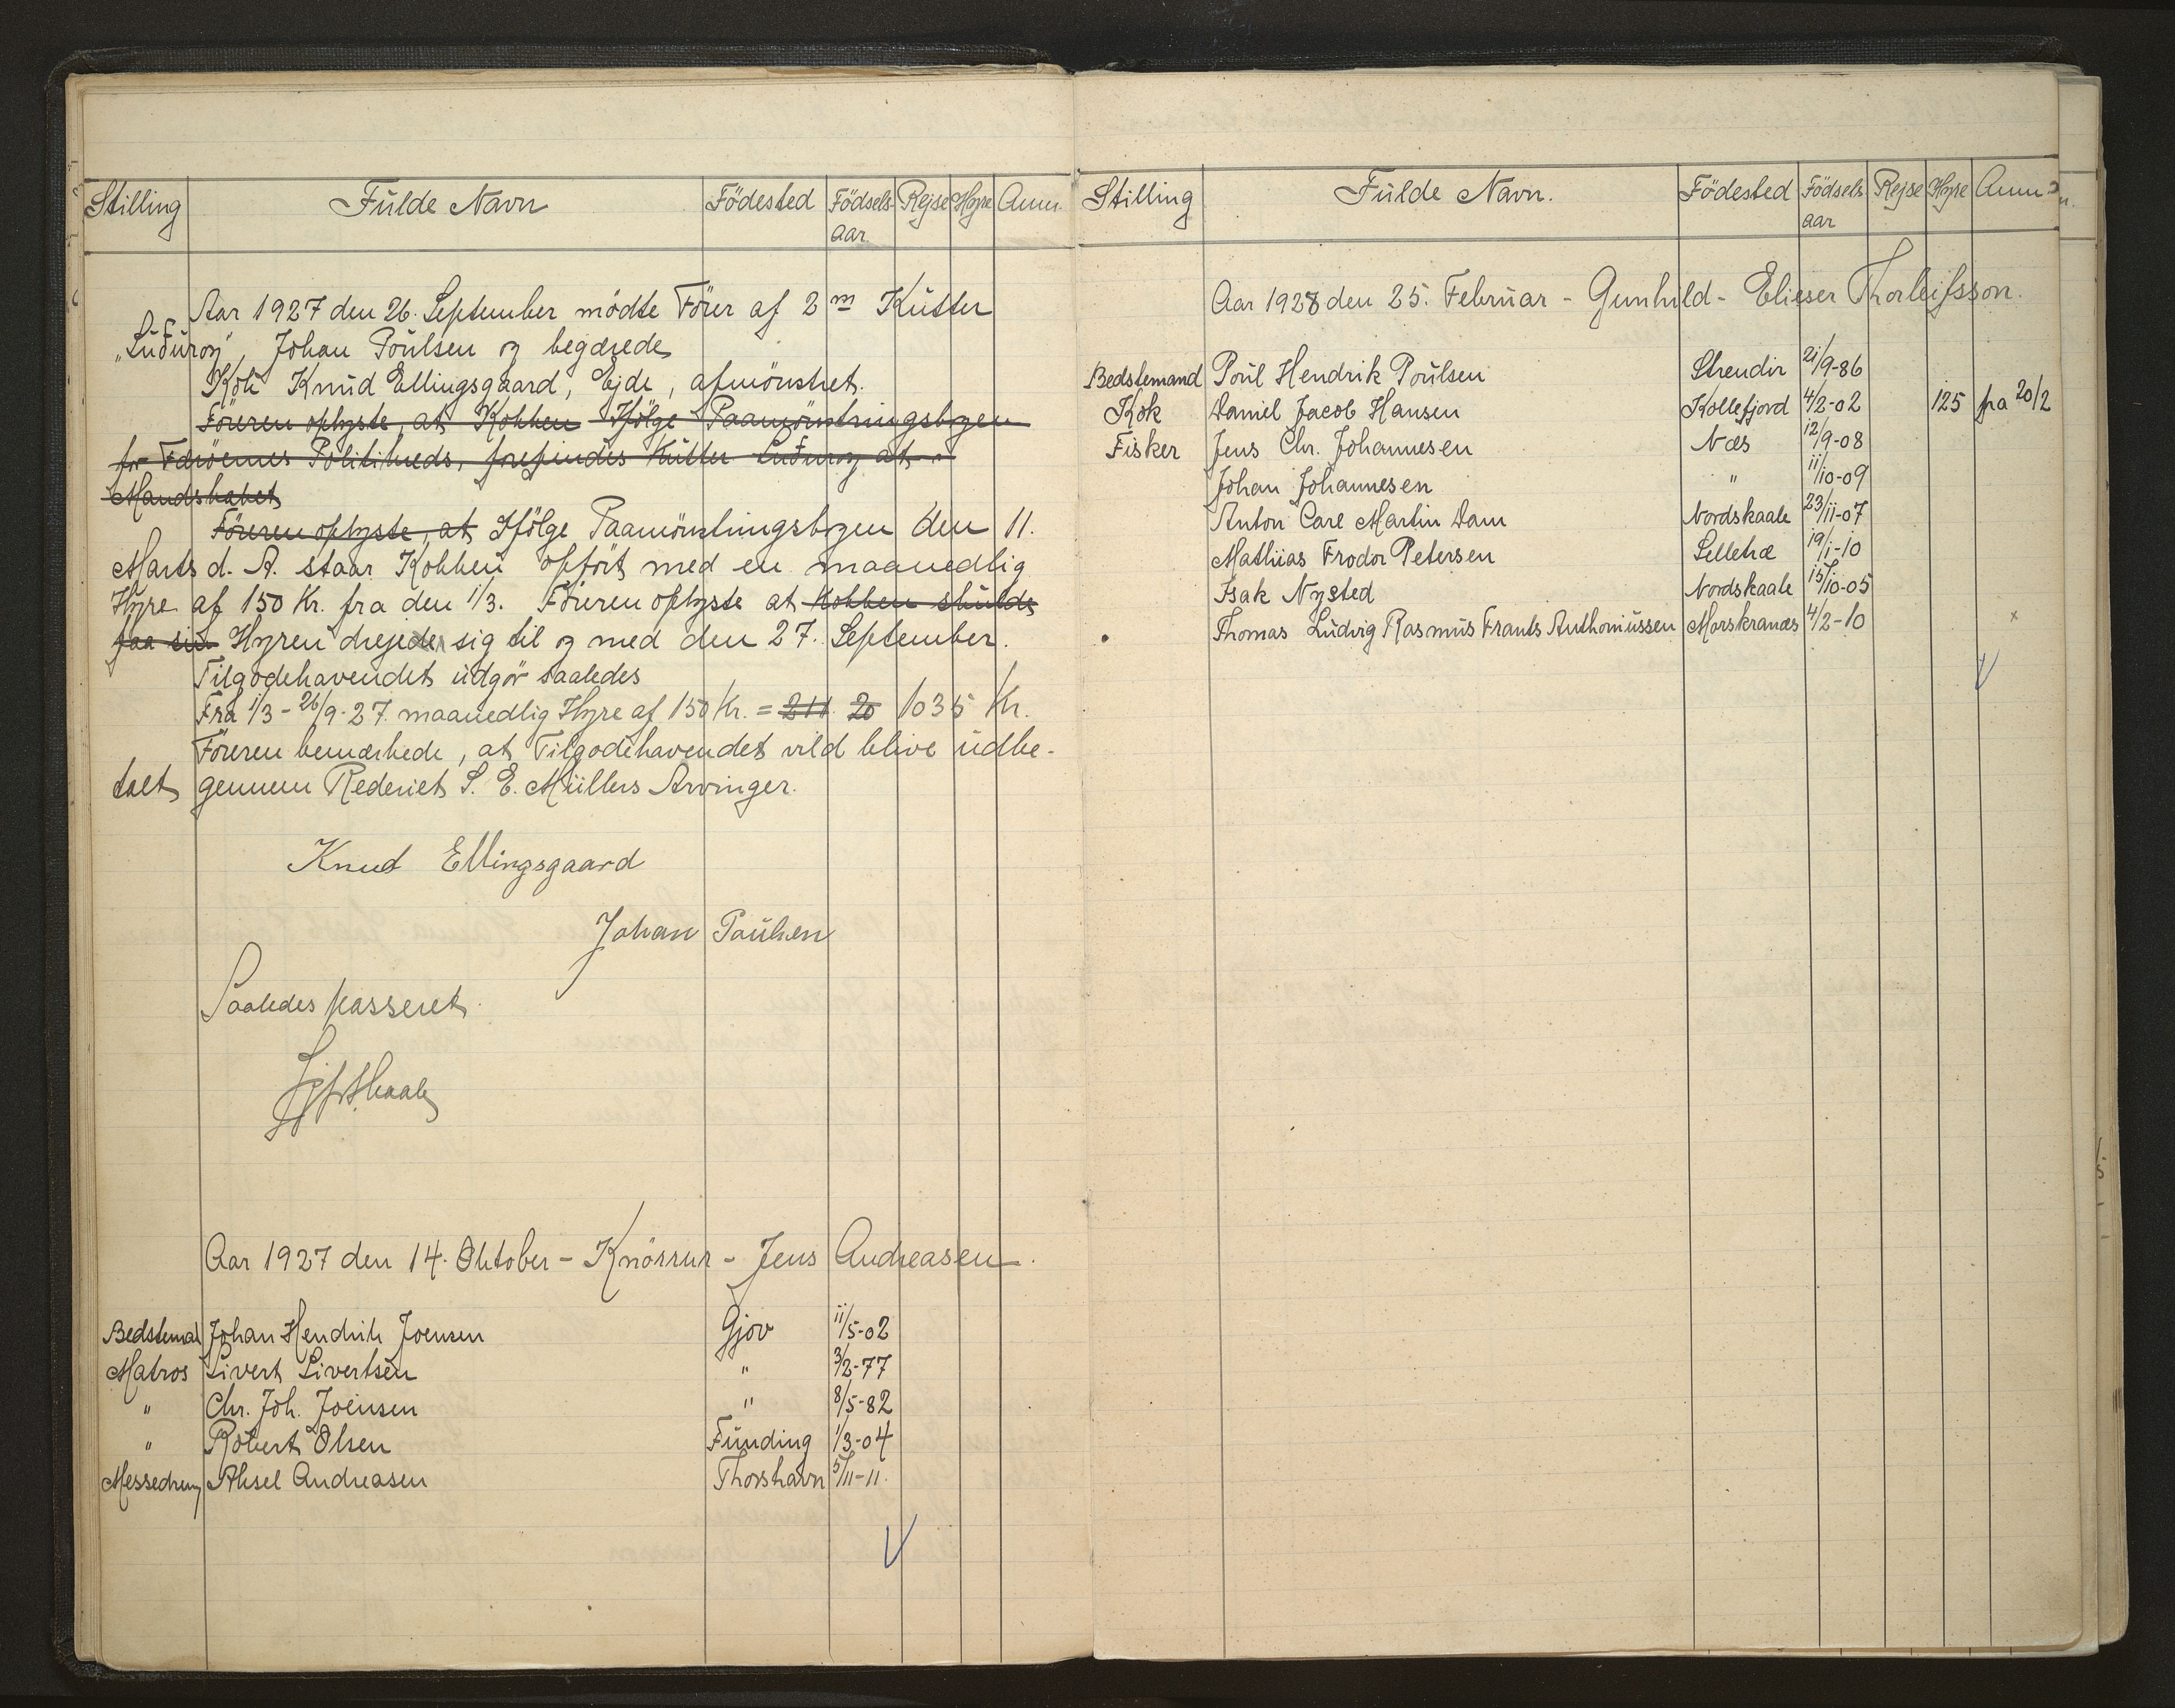 Stilling Fulde Navn Födested Födsels Rejse Hyre Anm.
aar
Aar 1927 den 26. September mödte Förer af 2 m Kutter
„Suduroy", Johan Poulsen og begærede
Kok Knud Ellingsgaard, Ejde, afmönstret.
Föreren oplyste, at Kokken Ifölge Paamönstringsbogen
for Færöernes Politikreds, forefindes Kutter Suduroy at
Mandskabet
Föreren oplyste, at Ifölge Paamönstringsbogen den 11.
Marts d. A. staar Kokken opfört med en maanedlig
Hyre af 150 Kr. fra den 1/3. Föreren oplyste at Kokken skulde
faa sin Hyren drejede sig til og med den 27. September.
Tilgodehavendet udgör saaledes
Fra 1/3 - 26/9-27 maanedlig Hyre af 150 Kr. = 211 20 1035 Kr.
Föreren bemærkede, at Tilgodehavendet vild blive udbe-
talt gennem Rederiet S. E. Müllers Arvinger.
Knud Ellingsgaard
Johan Poulsen
Saaledes passeret.
Aar 1927 den 14. Oktober - Knörrur - Jens Andreasen.
Bedstemand Johan Hendrik Joensen Gjov 11/5-02
Matros Sivert Sivertsen " 3/2-77
" Chr. Joh. Joensen " 8/5-82
" Robert Olsen Funding 1/3-04
Messedreng Aksel Andreasen Thorshavn 5/11-11.
Stilling Fulde Navn. Födested Födsels Rejse Hyre Anm
aar
Aar 1928 den 25. Februar - Gunhild - Elieser Thorleifsson.
Bedstemand Poul Hendrik Poulsen Strendir 21/9-86
Kok Daniel Jacob Hansen Kollefjord 4/2-02 125 fra 20/2
Fisker Jens Chr. Johannesen Næs 12/9-08
Johan Johannesen " 11/10-09
Anton Carl Martin Dam Nordskaale 23/11-07
Mathias Frodor Petersen Selletræ 19/1-10
Isak Nysted Nordskaale 15/10-05
Thomas Ludvig Rasmus Frants Anthoniussen Morskranes 4/2-10 x